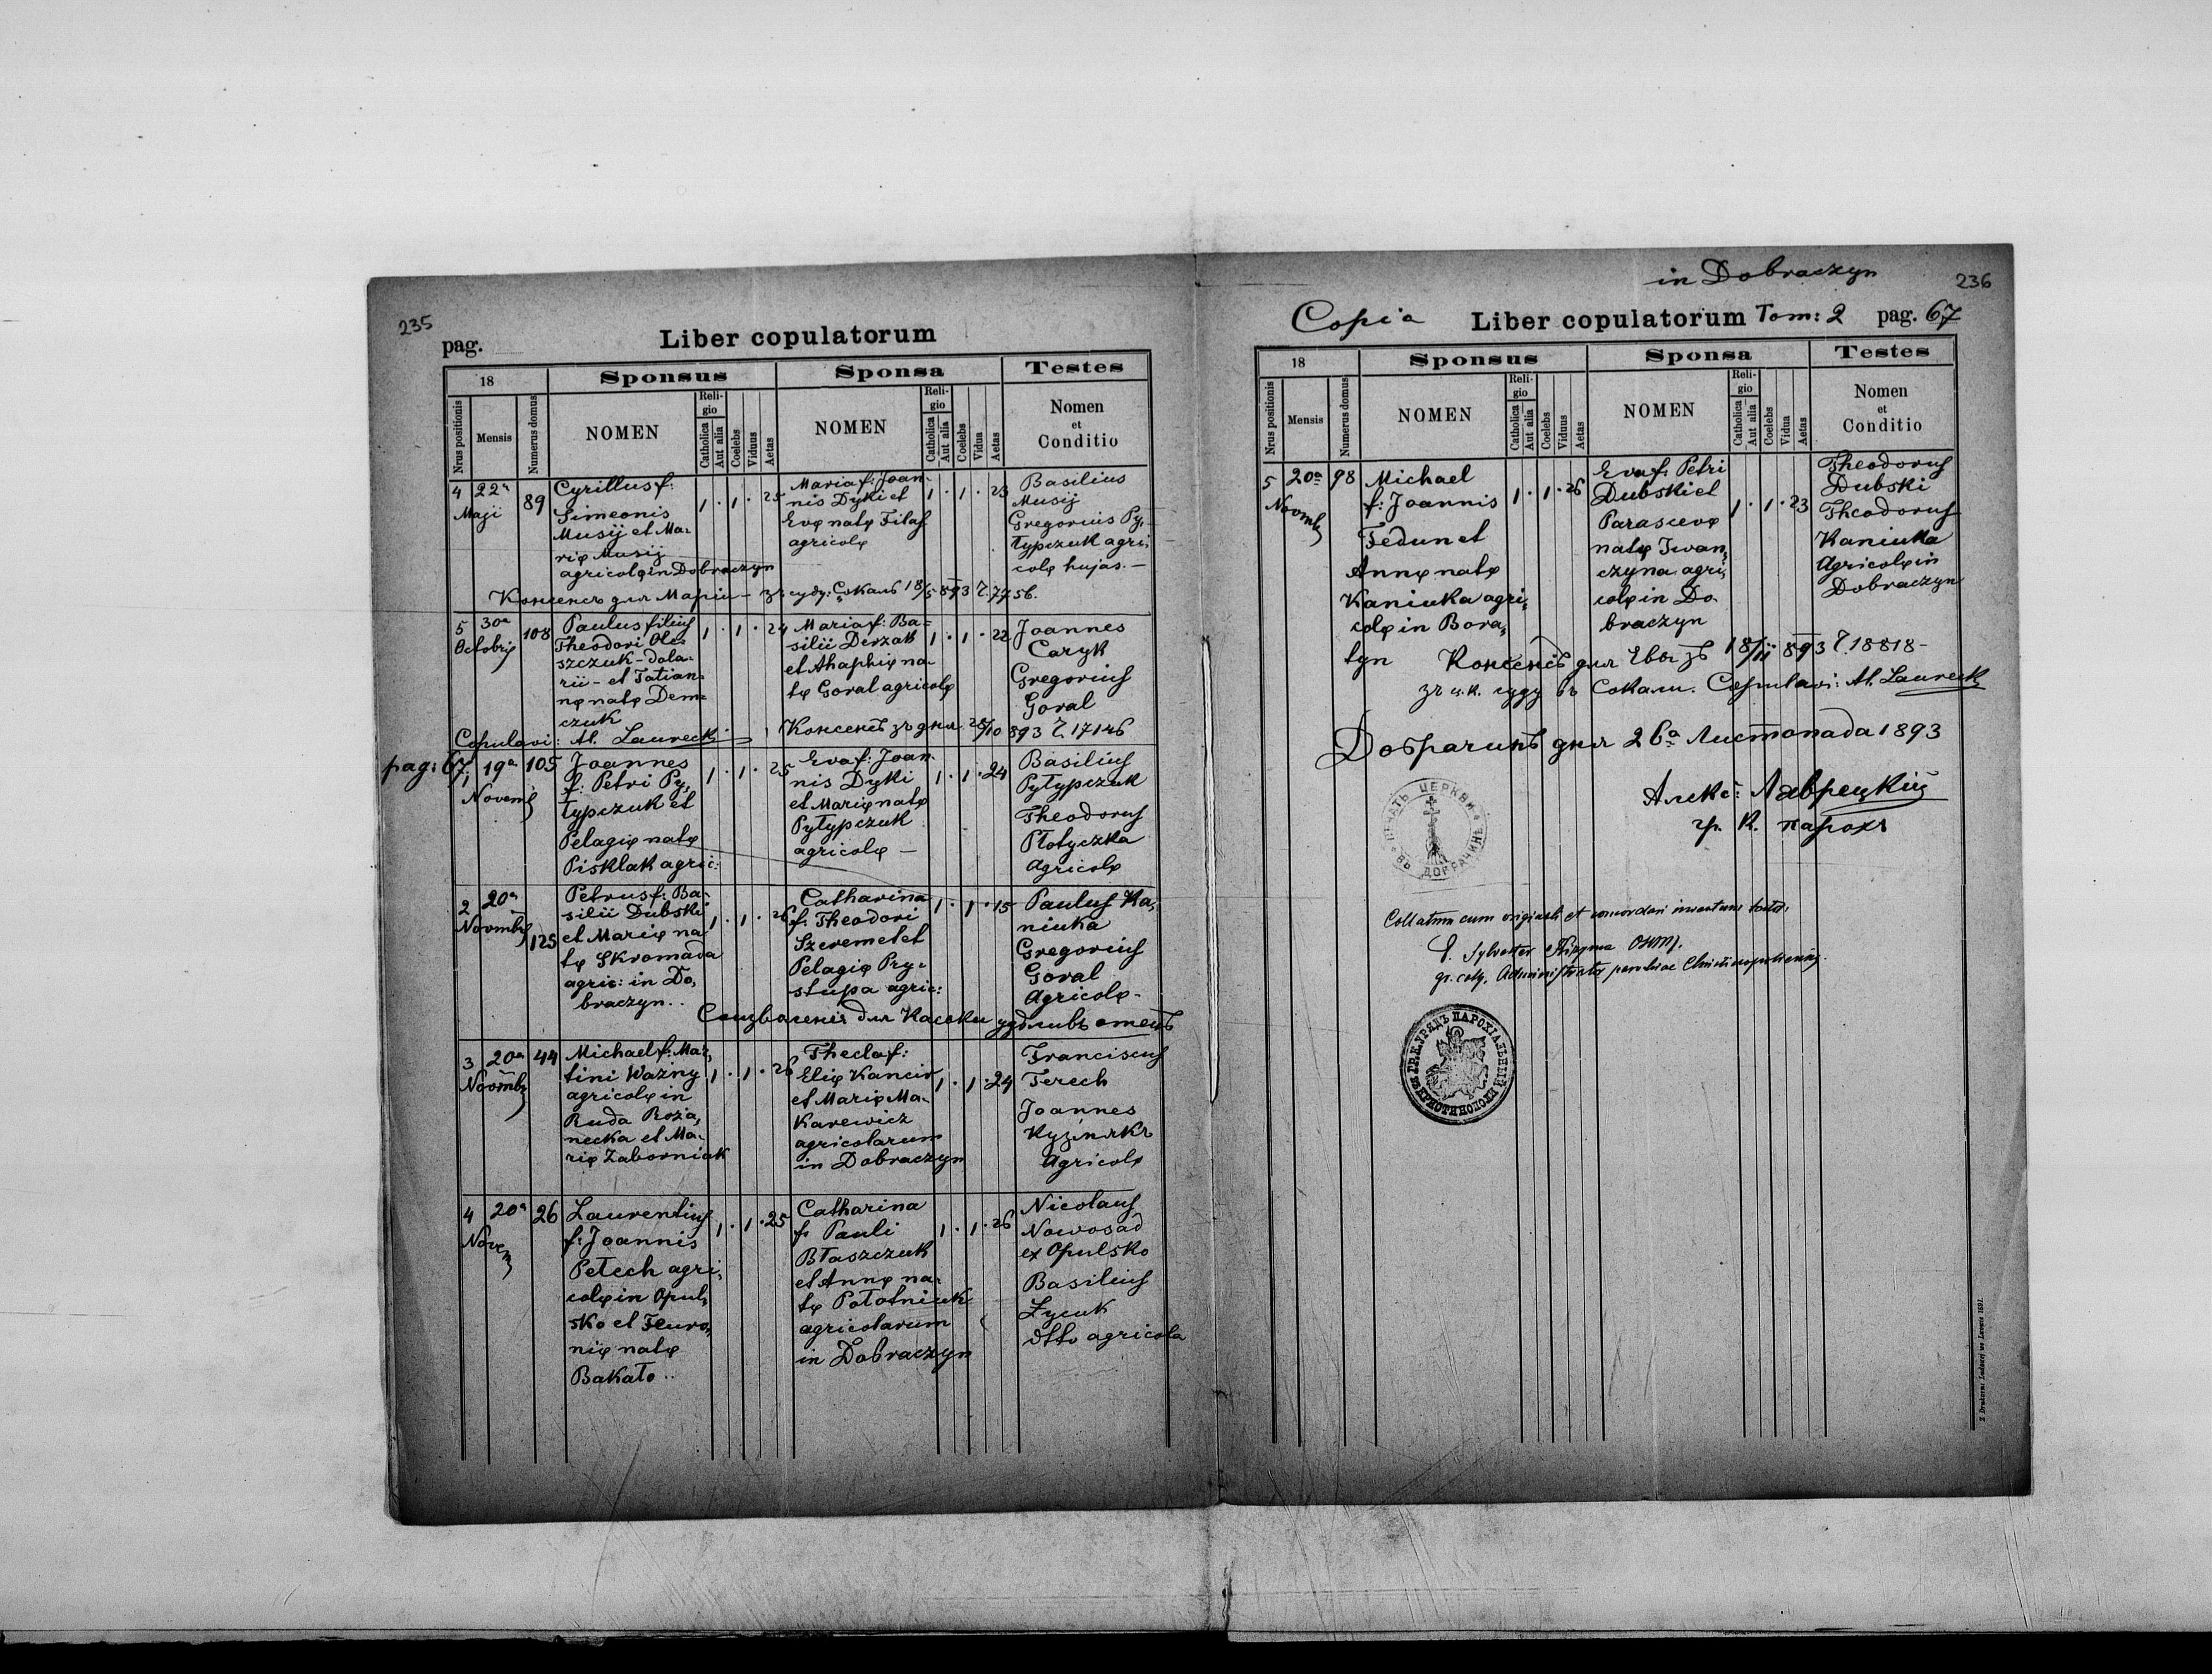 235
pag.
Liber copulatorum
18
Sponsus
Sponsa
Testes
Nrus positionis
Mensis
Numerus domus
NOMEN
Religio
Catholica
Aut alia
Coelebs
Viduus
Aetas
NOMEN
Religio
Catholica
Aut alia
Coelebs
Vidua
Aetas
Nomen
et
Conditio
4 22ª
Maji
89
Cyrillus f:
Simeonis
Musij et Ma-
rię Musij
agricolę in Dobraczyn
1 . 1 . 25
Maria f: Joan-
nis Dyki et
Evę natę Filaſ
agricolę
1 . 1 . 23
Basilius
Musij
Gregorius Py-
łypczuk agri-
colę hujas. —
Консенсъ для Маріи — зъ суду: Сокаль 18/5 893 Z. 7756.
5 30ª
Octobris
108
Paulus filius
Theodori Ole-
szczuk - dola-
rii - et Tatian-
nę natę Dem-
czuk
1 . 1 . 24
Maria f: Ba-
silii Derzak
et Ahaphię na-
tę Goral agricolę
1 . 1 . 22
Joannes
Caryk
Gregorius
Goral
Copulavi: Al. Laurecki
Консенсъ зъ дня 28/10 893 Z. 17146
pag: 67
1 19ª
Novemb
105
Joannes
f: Petri Py-
łypczuk et
Pelagię natę
Pisklak agric:
1 . 1 . 25
Eva f: Joan-
nis Dyki
et Marię natę
Pyłypczuk
agricolę —
1 . 1 . 24
Basilius
Pyłypczuk
Theodorus
Płotyczka
Agricolę
2 20ª
Novmb
125
Petrus f: Ba-
silii Dubski
et Marię na-
tę Skromada
agric: in Do-
braczyn..
1 . 1 . 26
Catharina
f: Theodori
Szeremet et
Pelagię Pry-
stupa agric:
1 . 1 . 15
Paulus Ka-
niuka
Gregorius
Goral
Agricolę -
для Каськи удѣливъ отець
3 20ª
Novmb
44
Michael f: Mar-
tini Wazny
agricolę in
Ruda Roża-
necka et Ma-
rię Zaborniak
1 . 1 . 26
Thecla f:
Elię Kancir
et Marię Ma-
karewicz
agricolarum
in Dobraczyn
1 . 1 . 24
Franciscus
Terech
Joannes
Agricolę
4 20ª
Novem
26
Laurentius
f: Joannis
Petech agri-
colę in Opul-
sko et Feuro-
nię natę
Bakato ..
1 . 1 . 25
Catharina
f: Pauli
Błaszczuk
et Annę na-
tę Połotniuk
agricolarum
in Dobraczyn
1 . 1 . 26
Nicolaus
Nowosad
ex Opulsko
Basilius
Zycuk
dtto agricola
in Dobraczyn
236
Copia
Liber copulatorum Tom: 2 pag. 67
18
Sponsus
Sponsa
Testes
Nrus positionis
Mensis
Numerus domus
NOMEN
Religio
Catholica
Aut alia
Coelebs
Viduus
Aetas
NOMEN
Religio
Catholica
Aut alia
Coelebs
Vidua
Aetas
Nomen
et
Conditio
5 20ª
Novmb
98
Michael
f: Joannis
Fedun et
Annę natę
Kaniuka agri-
colę in Bora-
tyn
1 . 1 . 26
Eva f: Petri
Dubski et
Parascevę
natę Iwan-
czyna agri-
colę in Do-
braczyn
1 . 1 . 23
Theodorus
Dubski
Theodorus
Kaniuka
Agricolę in
Dobraczyn
Консенсъ для Евы зъ 18/11 893 Z. 18818 -
зъ ц.к. суду въ Сокали. Copulavi: Al. Laurecki
Добрачинъ дня 26ª Листопада 1893
Алекс: Лаврецкій
гр. к. парохъ
ПЕЧАТЬ ЦЕРКВИ ВЪ ДОБРАЧИНѢ
Collatum cum originali et concordari inventum
P. Sylvester OSBM.
gr. cath. Administrator parochiae Christinopoliensis.
ГР. К. УРЯДЪ ПАРОХІАЛЬНЫЙ въ КРИСТИНОПОЛИ
Z Drukarni Ludowej we Lwowie 1891.